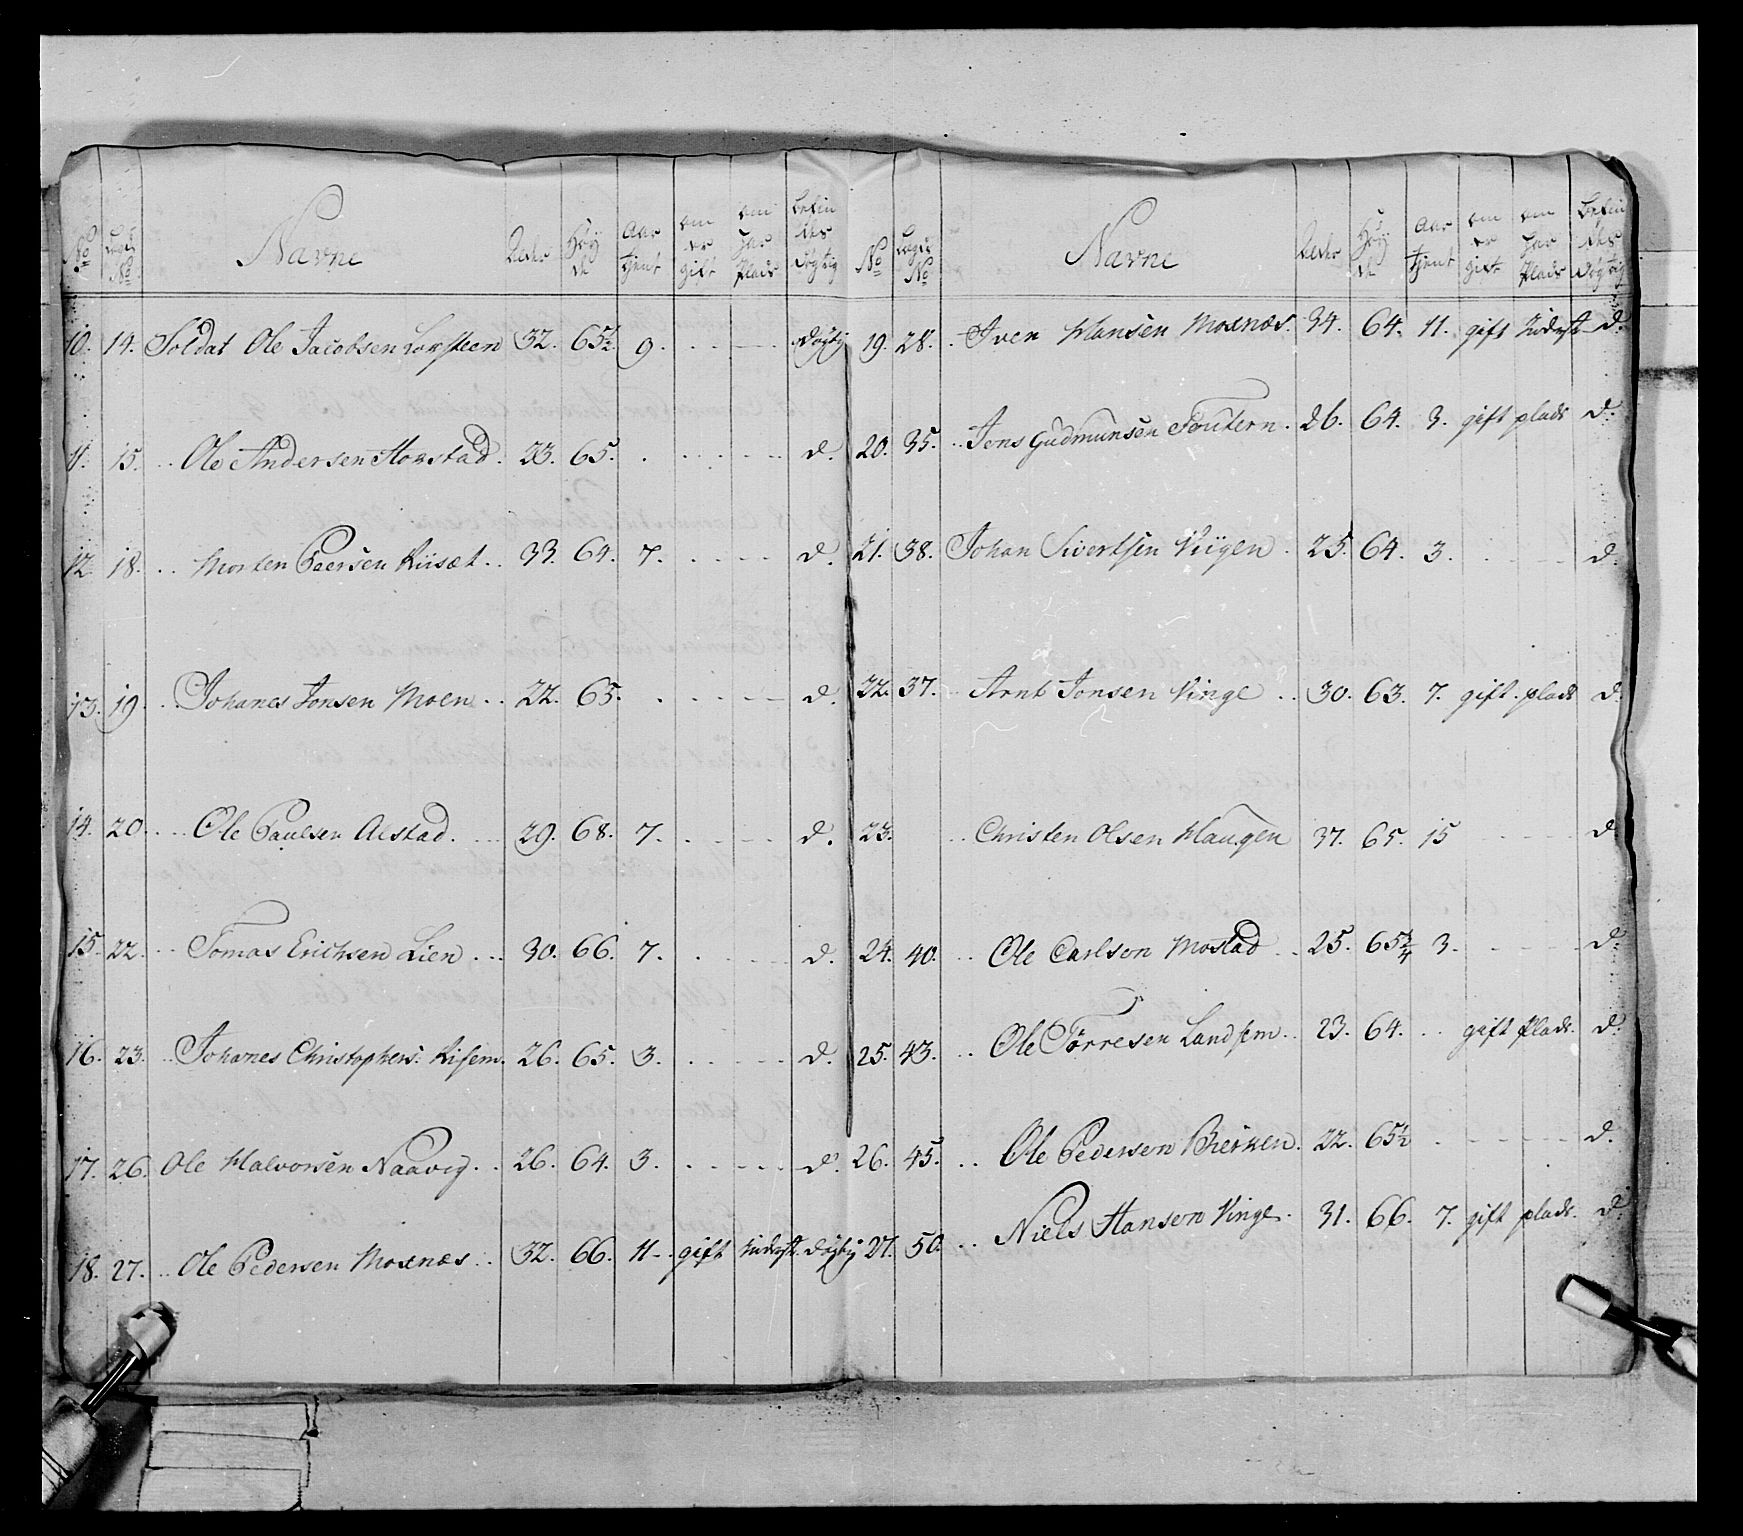 No Lægds No Navne Alder Høyde Aar tjent om er gift om har Plads befindes døgtig
10. 14. Soldat Ole Jacobsen Lorsteen 32. 65½ 9. døgtig
11. 15. Ole Andersen Horstad. 23. 65. d.
12. 18. Morten Paersen Riisæt. 33. 64. 7. d.
13. 19. Johanes Jonsen Moen. 22. 65. d.
14. 20. Ole Paulsen Aestad. 29. 68. 7. d.
15. 22. Tomas Erichsen Lien 30. 66. 7. d.
16. 23. Johanes Christophers. Risem. 26. 65. 3. d.
17. 26. Ole Halvorsen Naavig. 26. 64. 3. d.
18. 27. Ole Pedersen Mosnæs. 32. 66. 11. gift Inderst døgtig
No Lægds No Navne Alder Høyde Aar tjent om er gift om har Plads befindes døgtig
19. 28. Iven Hansen Mosnæs. 34. 64. 11. gift Inderst d.
20. 35. Jens Gudmunsen 26. 64. 3. gift plads d.
21. 38. Johan Sivertsen Viigen. 25. 64. 3. d.
22. 37. Arnt Jonsen Vinge 30. 63. 7. gift. plads d.
23. Christen Olsen Haugen 37. 65. 15 d.
24. 40. Ole Carlson Mostad 25. 65¾ 3. d.
25. 43. Ole Tørresen Landsem. 23. 64. gift Plads. d.
26. 45. Ole Pederson Bierken. 22. 65½ d.
27. 50. Niels Hanson Vinge. 31. 66. 7. gift plads. d.